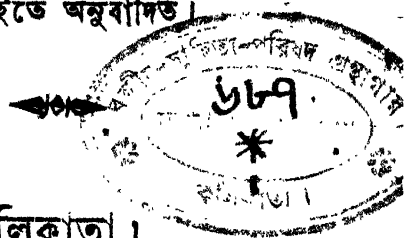 হইতে অনুবাদিত।
বঙ্গীয়-সাহিত্য-পরিষদ গ্রন্থাগার
৬৮৭
কলিকাতা।
লিকাতা।